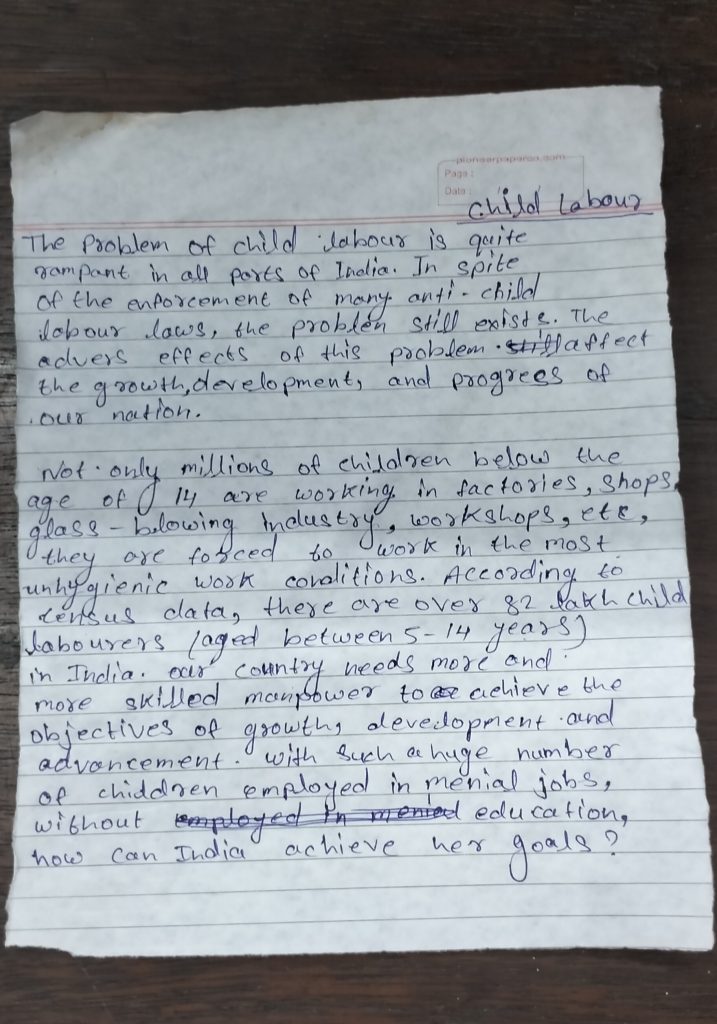 pioneerpaperco.com
Page :
Date :
Child Labour
The Problem of child labour is quite
rampant in all parts of India. In spite
of the enforcement of many anti-child
labour laws, the problen still exists. The
advers effects of this problem affect
the growth, development, and progrees of
our nation.
Not only millions of children below the
age of 14 are working in factories, shops,
glass-blowing industry, workshops, etc,
they are forced to work in the most
unhygienic work conditions. According to
census data, there are over 82 lakh child
labourers (aged between 5-14 years)
in India. our country needs more and
more skilled manpower to achieve the
objectives of growth, development and
advancement. with such a huge number
of children employed in menial jobs,
without education,
how can India achieve her goals?